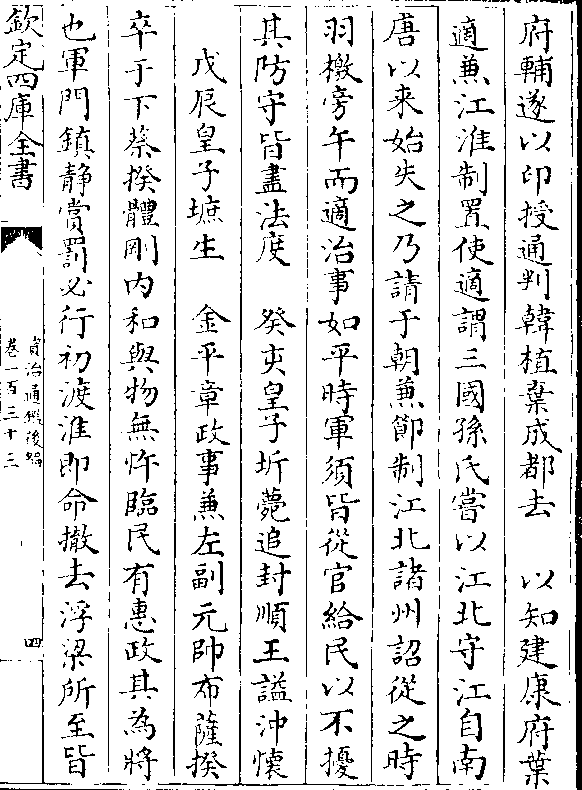 府輔遂以印授通判韓植棄成都去　以知建康府葉
適兼江淮制置使適謂三國孫氏嘗以江北守江自南
唐以来始失之乃請于朝兼節制江北諸州詔從之時
羽檄旁午而適治事如平時軍須皆從官給民以不擾
其防守皆盡法度　癸亥皇子圻薨追封順王謚沖懷
戊辰皇子墌生　金平章政事兼左副元帥布薩揆
卒于下蔡揆體剛内和與物無忤臨民有惠政其為將
也軍門鎮静賞罰必行初渡淮即命撤去浮梁所至皆
欽定四庫全書
資治通鑑後編
卷一百三十三
四